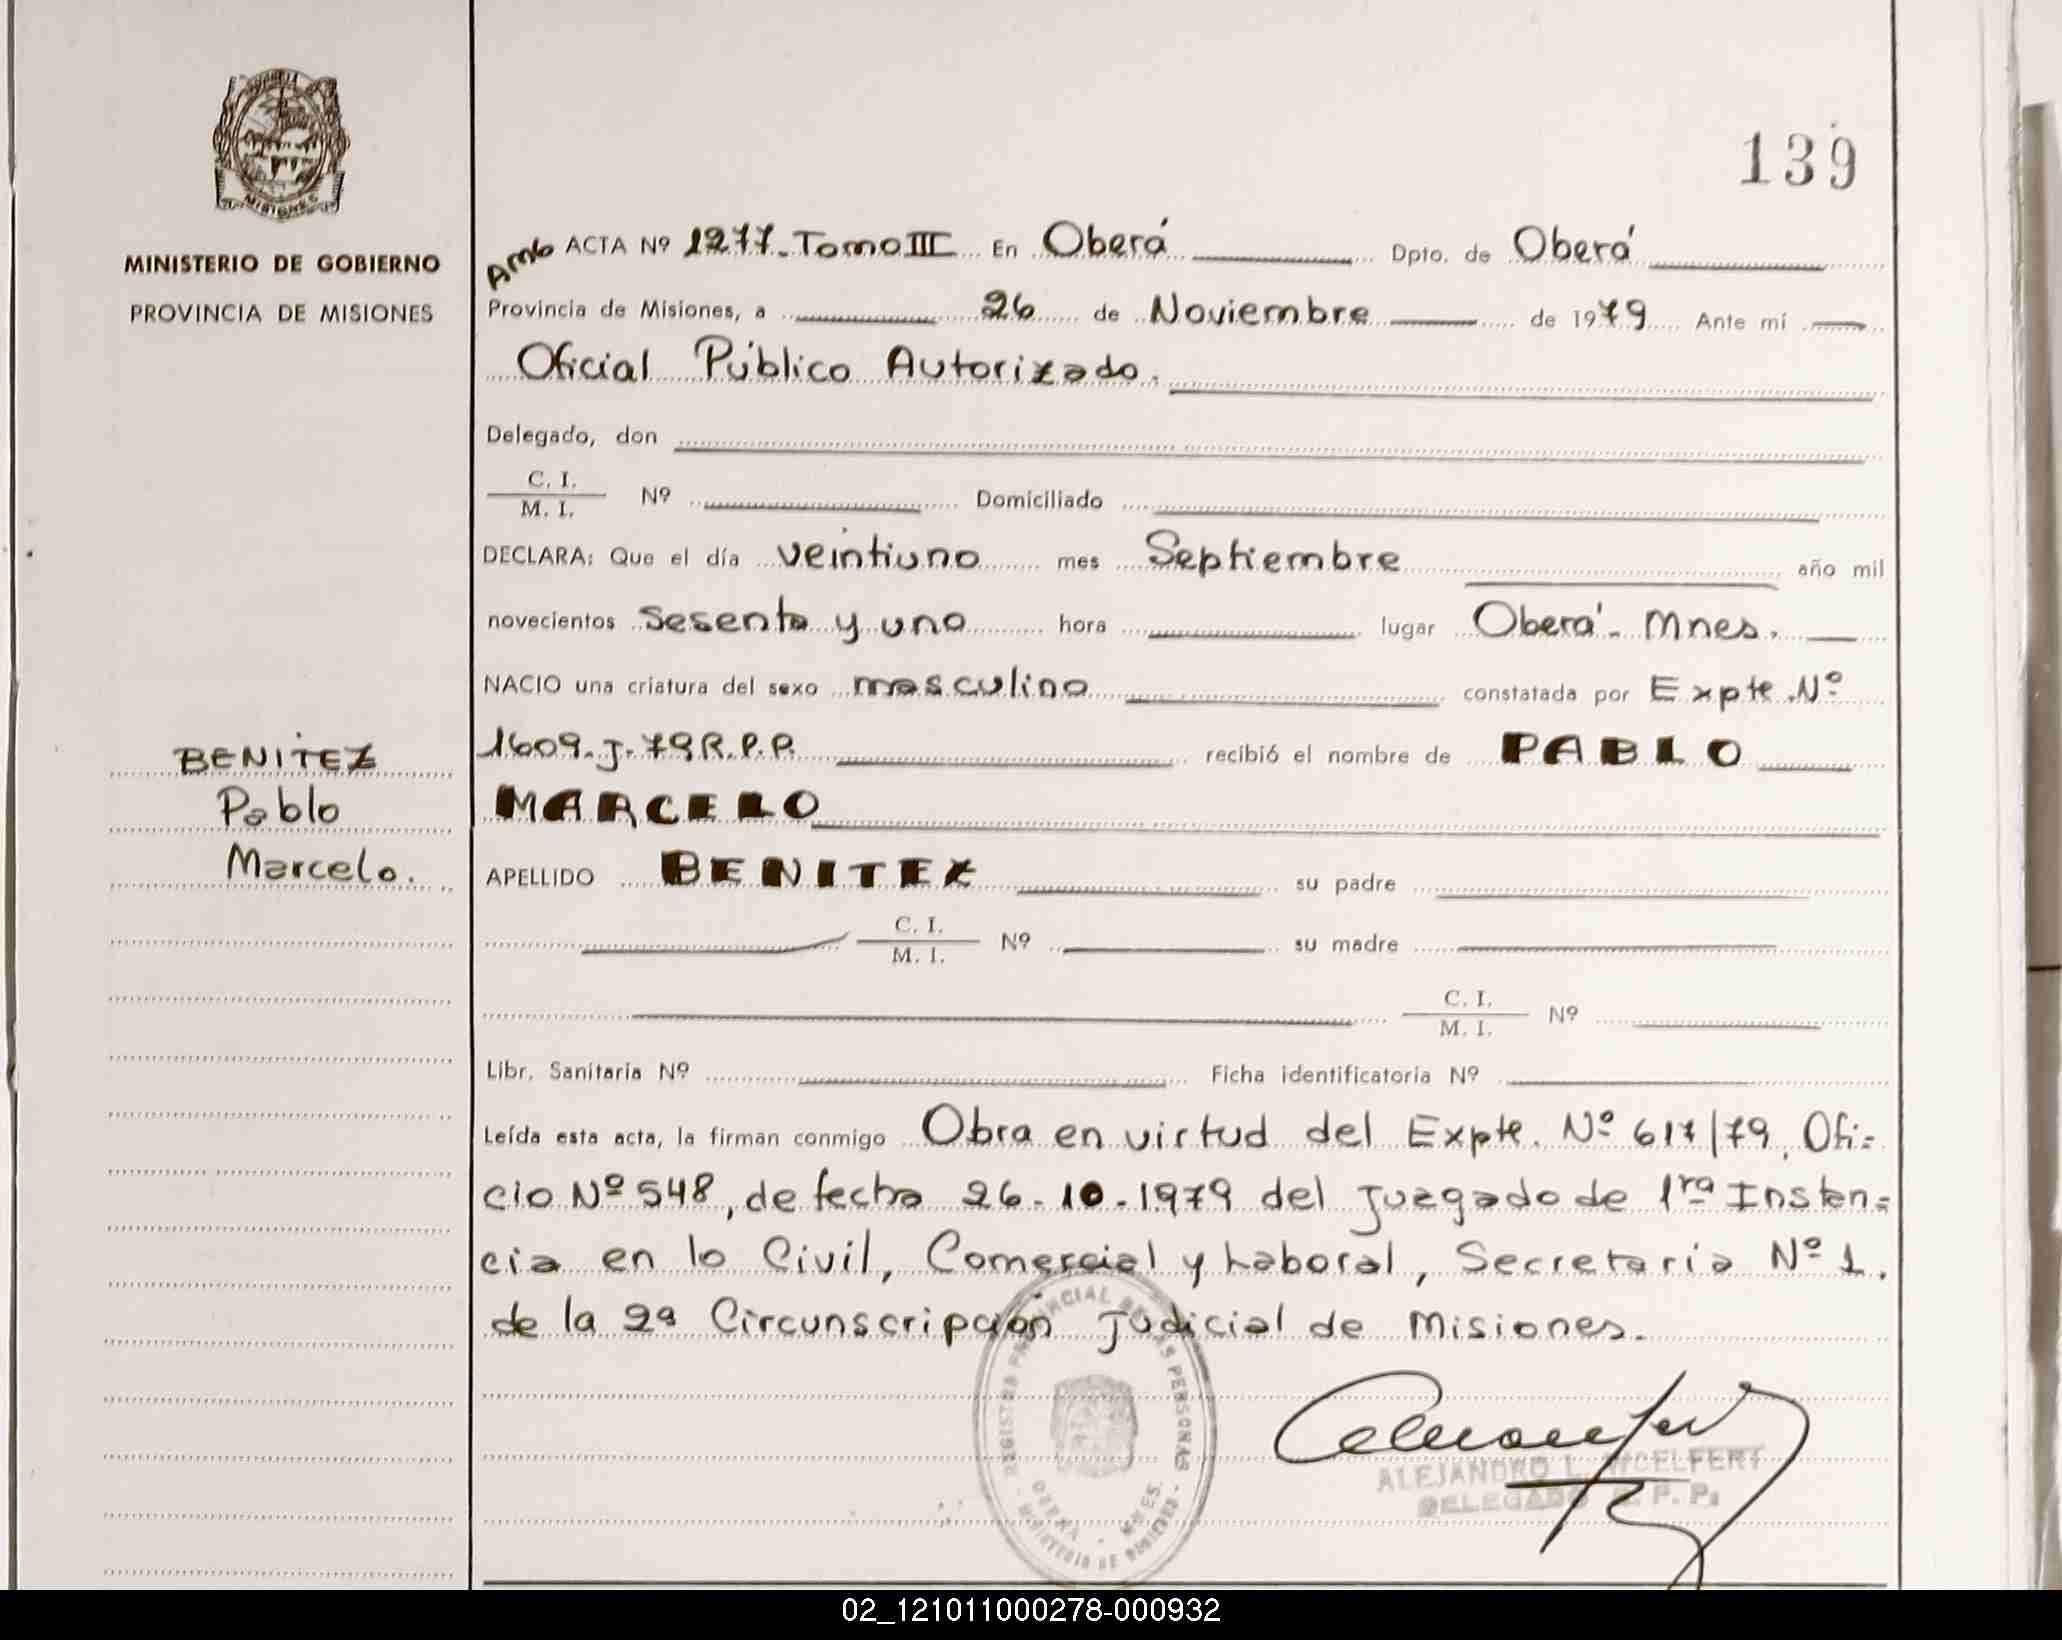 139
MISIONES
MINISTERIO DE GOBIERNO
PROVINCIA DE MISIONES
BENITEZ
Pablo
Marcelo.
ACTA Nº 1277-Tomo III En Oberá Dpto. de Oberá
Provincia de Misiones, a 26 de Noviembre de 1979 Ante mí
Oficial Público Autorizado.
Delegado, don
C. I.
M. I. Nº Domiciliado
DECLARA: Que el día veintiuno mes Septiembre año mil
novecientos sesenta y uno hora lugar Oberá- Mnes.
NACIO una criatura del sexo masculino constatada por Expte. Nº
1609-J-79 R.P.P. recibió el nombre de PABLO
MARCELO
APELLIDO BENITEZ su padre
C. I.
M. I. Nº su madre
C. I.
M. I. Nº
Libr. Sanitaria Nº Ficha identificatoria Nº
Leída esta acta, la firman conmigo Obra en virtud del Expte. Nº 617/79, Ofi=
cio Nº 548, de fecha 26-10-1979 del Juzgado de 1ra Instan=
cia en lo Civil, Comercial y Laboral, Secretaria Nº 1.
de la 2ª Circunscripción Judicial de Misiones.
REGISTRO PROVINCIAL DE LAS PERSONAS
OBERA - MNES.
MINISTERIO DE GOBIERNO
ALEJANDRO L.
DELEGADO R. P. P.
02_121011000278-000932